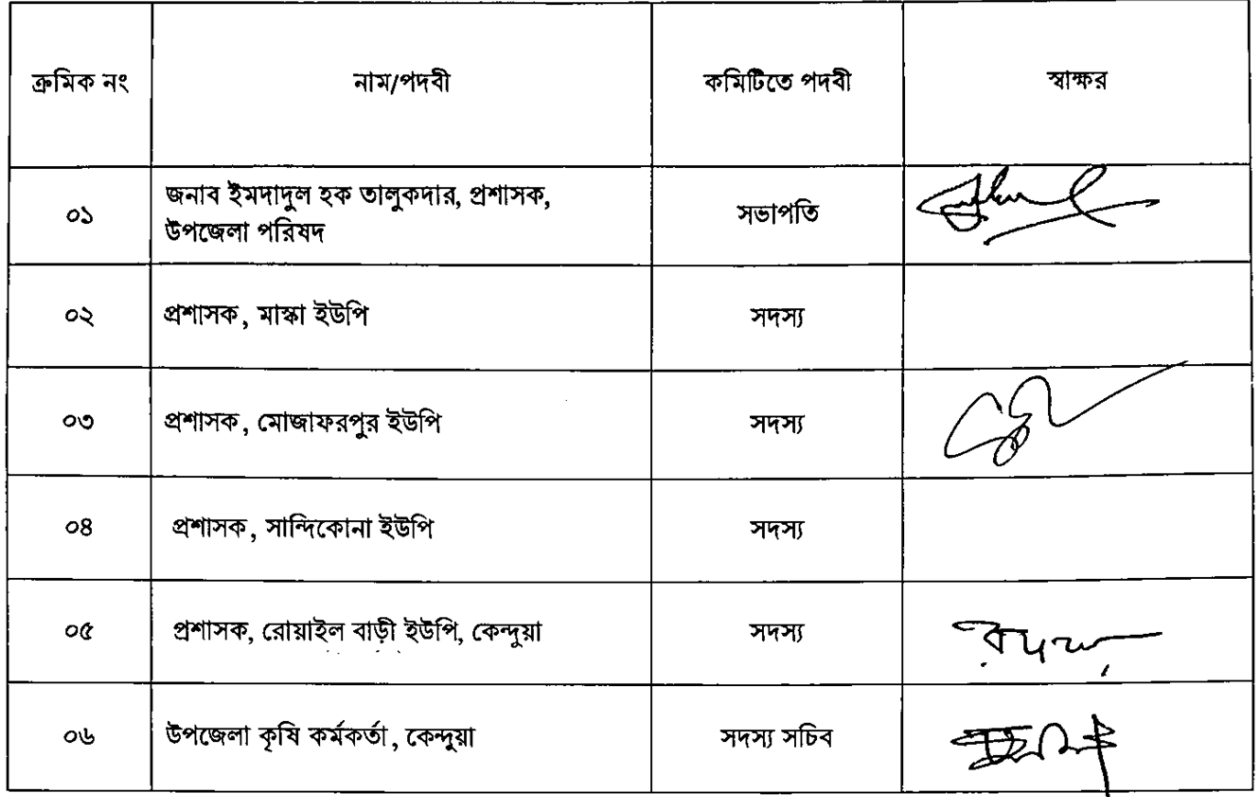 ক্রমিক নং নাম/পদবী কমিটিতে পদবী স্বাক্ষর
০১ জনাব ইমদাদুল হক তালুকদার, প্রশাসক, সভাপতি
উপজেলা পরিষদ
০২ প্রশাসক, মাস্কা ইউপি সদস্য
০৩ প্রশাসক, মোজাফরপুর ইউপি সদস্য
০৪ প্রশাসক, সান্দিকোনা ইউপি সদস্য
০৫ প্রশাসক, রোয়াইল বাড়ী ইউপি, কেন্দুয়া সদস্য
০৬ উপজেলা কৃষি কর্মকর্তা, কেন্দুয়া সদস্য সচিব